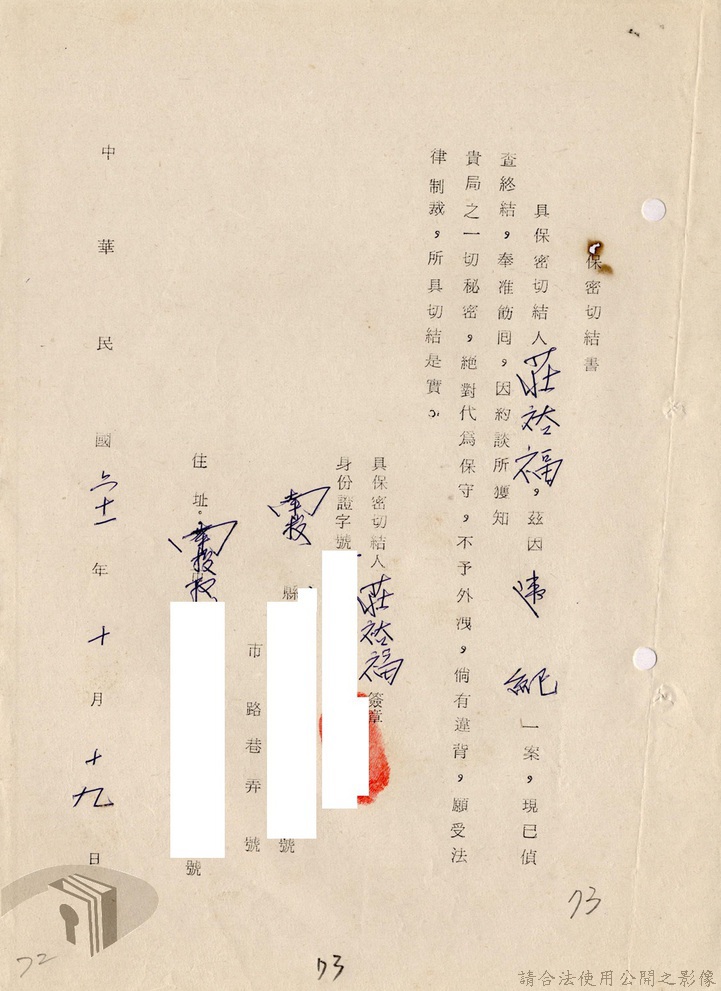 保密切結書
具保密切結人莊裕福，茲因違紀一案，現已偵
查終結，奉准飭回，因約談所獲知
貴局之一切秘密，絕對代為保守，不予外洩，倘有違背，願受法
律制裁，所具切結是實。
具保密切結人莊裕福簽章
身份證字號
南投縣
號
市路巷弄號
住址。南投
號
中華民國六十一年十月十九日
73
73
72
請合法使用公開之影像